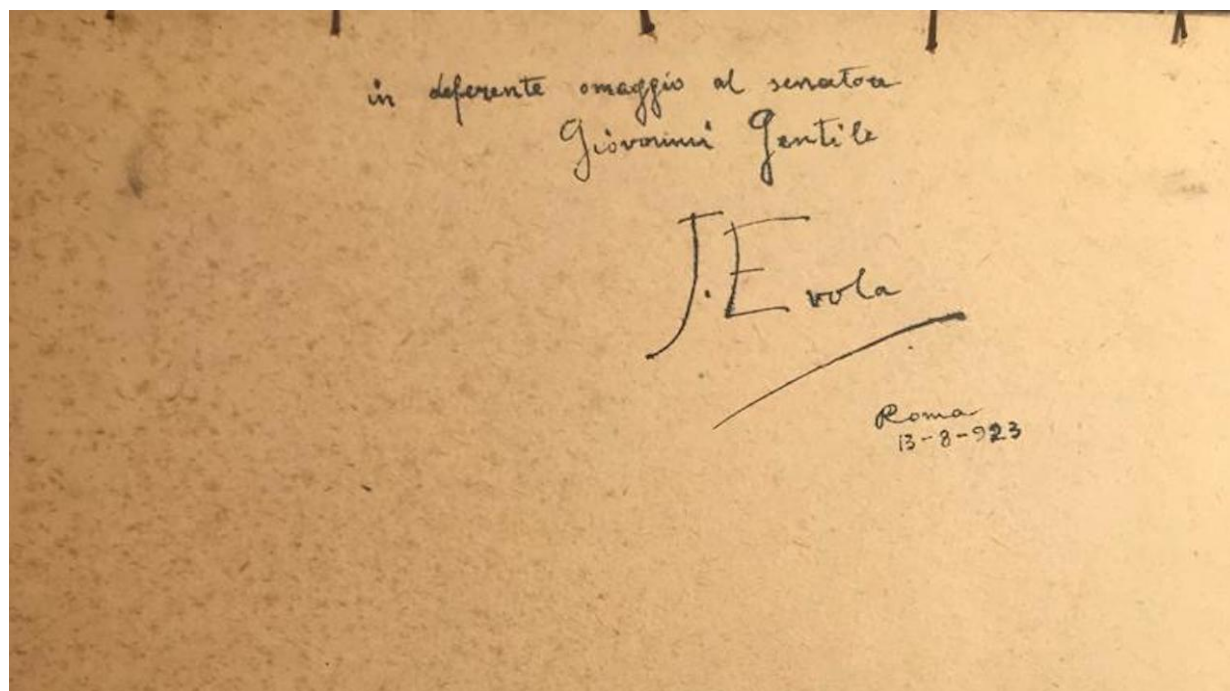 in deferente omaggio al senatore
Giovanni Gentile
J. Evola
Roma
13-8-923